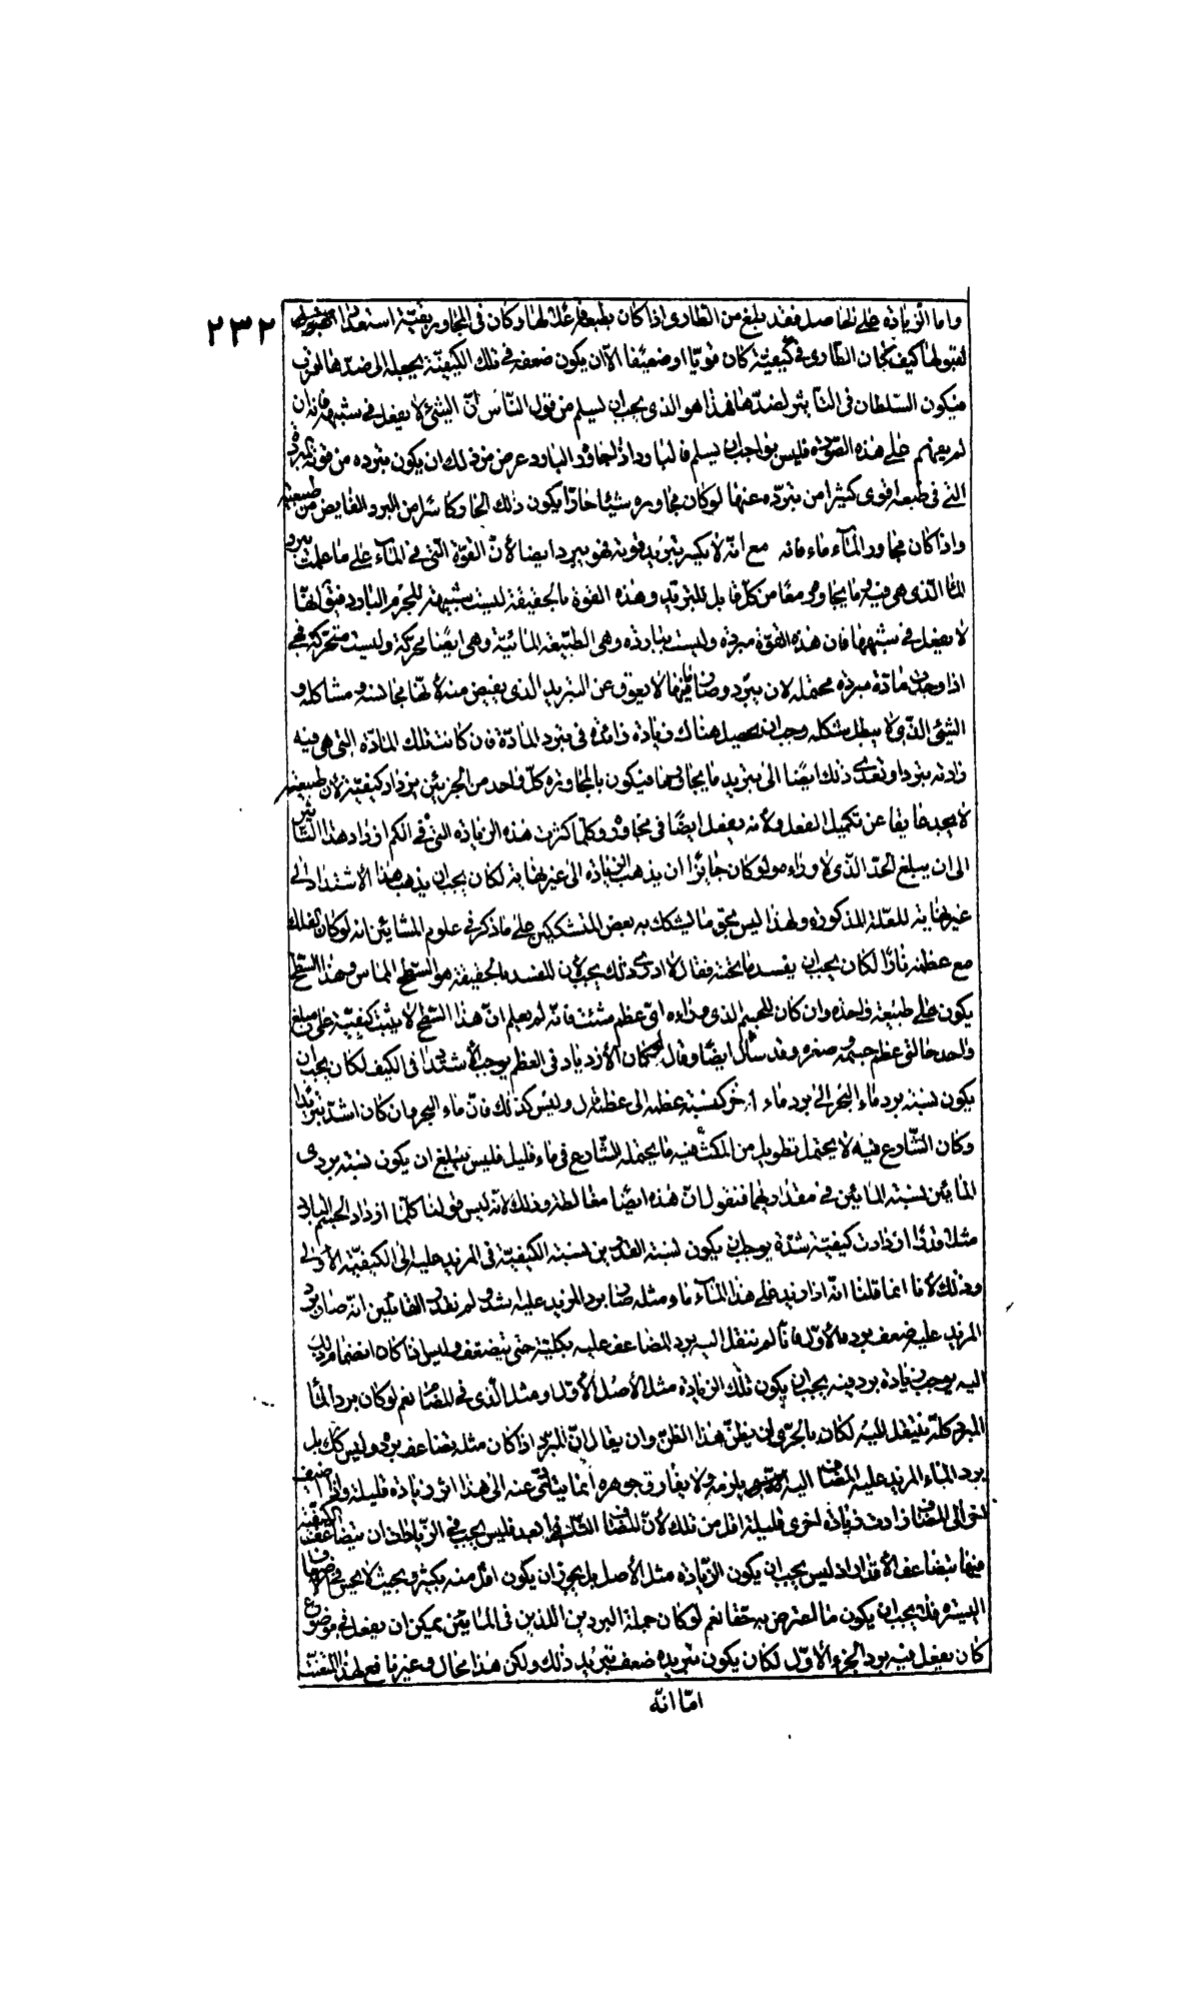 ٢٣٢
واما الزيادة على الحاصل فقد يبلغ من الطارى اذا كان بطبعه فاعلا لها وكان فى المجاور بقية استعداد
لقبولها كيف كان الطارى فى كيفيته كان قويا او ضعيفا الا ان يكون ضعفه فى تلك الكيفية يجعله الى ضدها اقرب
فيكون السلطان فى التاثير لضدها فهذا هو الذى يجب ان يسلم من قول الناس ان الشئ لا يفعل فى شبهه فانه ان
لم يفهم على هذه الصورة فليس بواجب ان يسلم فالبارد اذا جاور البارد عرض من ذلك ان يكون تبرده من قوته المبردة
التى فى طبعه اقوى كثيرا من تبرده عنها لو كان مجاوره شيئا حارا يكون ذلك الحار كاسرا من البرد الفايض من طبيعته
واذا كان مجاور الماء ماء فانه مع انه لا يكسر تبريد قوته فهو يبرد ايضا لأن القوة التى فى الماء على ما علمت تبرد
الماء الذى هى فيه وما يجاوره معا من كل قابل للتبريد وهذه القوة بالحقيقة ليست بشبيهة للجرم البارد فيق انها
لا يفعل فى شبهها فان هذه القوة مبردة وليست بباردة وهى الطبيعة المائية وهى ايضا محركة وليست متحركة فهى
اذا وجدت مادة مبردة محتملة لان يبرد وصادفتها لا يعوق عن التبريد الذى يفيض منه لانها مجانسة ومشاكله و
الشئ الذى لا يبطل مشكله وجب ان يحصل هناك زيادة زائدة فى تبرد المادة فان كانت تلك المادة التى هى فيه
زادته تبردا وتعدى ذلك ايضا الى تبريد ما يجاورها فيكون بالمجاورة كل واحد من الجزئين يزداد كيفية لان طبيعته
لا يجد عايقا عن تكميل الفعل ولأنه يفعل ايضا فى مجاوره وكلما كثرت هذه الزيادة التى فى الكم ازداد هذا التاثير
الى ان يبلغ الحد الذى لا وراءه ولو كان جايزا ان يذهب الزيادة الى غير نهاية لكان يجب ان يذهب هذا الأشتداد الى
غير نهاية للعلة المذكورة ولهذا ليس بحق ما يشكك به بعض المتشككين على ما ذكر فى علوم المشائين انه لو كان الفلك
مع عظمه نارا لكان يجب ان يفسد ما تحته فقال لا ادرى ذلك يجب لأن المفسد بالحقيقة هو السطح المماس وهذا السطح
يكون على طبيعة واحدة وان كان للجسم الذى وراءه اى عظم شئت فانه لم يعلم ان هذا السطح لا يثبت كيفيته على مبلغ
واحد حالتى عظم جسمه وصغره وقد سأل ايضا وقال لو كان الأزدياد فى العظم يوجب الأشتداد فى الكيف لكان يجب ان
يكون نسبة برد ماء البحر الى برد ماء اخر كنسبة عظمه الى عظمه وليس كذلك فان ماء البحر وان كان اشد تبريدا
وكان الشارع فيه لا يحتمل تطويل من المكث فيه ما يحتمله الشارع فى ماء قليل فليس يبلغ ان يكون نسبة بردى
المائين نسبة المائين فى مقداريهما فنقول ان هذه ايضا مغالطة وذلك لانه ليس قولنا كلما ازداد الجسم البارد
مثلا قدرا ازدادت كيفيته شدة يوجب ان يكون نسبة القدرين نسبة الكيفية فى المزيد عليه الى الكيفية الأولى
وذلك لأنا انما قلنا انه اذا زيد على هذا الماء ماء ومثله صار برد المزيد عليه اشد ولم نقل القائلين انه صار برد
المزيد عليه ضعف برد الأول فانا لم ننقل اليه برد المضاعف عليه بكليته حتى يتضعف وليس اذا كان انضمام برد
اليه يوجب زيادة برد فيه يجب ان يكون تلك الزيادة مثل الأصل الأول ومثل الذى فى المضاف نعم لو كان برد الماء
المبرد كله ينتقل اليه لكان بالحرى ان يظن هذا الظن وان يقال ان المبرد اذا كان مثله يضاعف برده وليس كك بل
برد الماء المزيد عليه المضاف اليه يلزمه ولا يفارق جوهره انما يتأتى عنه الى هذا اثر وزيادة قليلة ولو اضيف
اخر الى المضاف زادت زيادة اخرى قليلة اقل من تلك لأن المضاف الثالث ابعد فليس يجب فى الزيادات ان يتضاعف الكيفية
فيها بتضاعف الأقدار اذ ليس يجب ان يكون الزيادة مثل الأصل بل يجوز ان يكون اقل منه بكثير وبحيث لا يحس
البتة فلا يجب ان يكون ما اعترض به حقا نعم لو كان جملة البردين اللذين فى المائين يمكن ان يفعل فى موضوع
كان يفعل فيه برد الجزء الأول لكان يكون تبريده ضعف تبريد ذلك ولكن هذا محال وغير نافع لهذا
اما انه